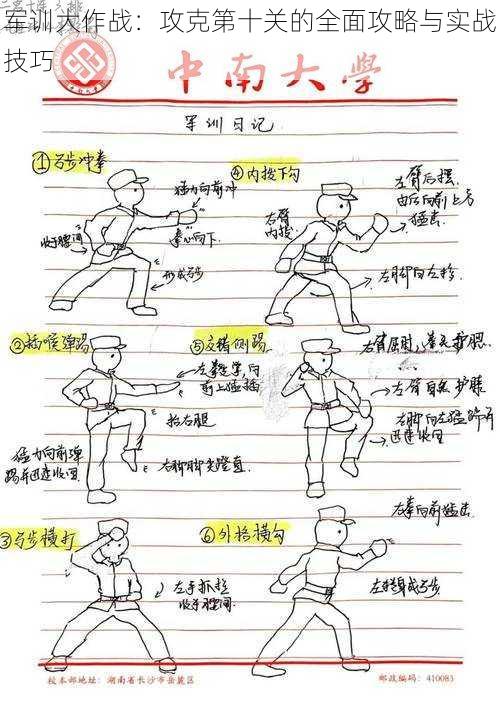 军训大作战：攻克第十关的全面攻略与实战
技巧
中南大学
军训日记
①弓步冲拳
猛力向前冲
收于腰间
拳心向下.
形成弓步
④内拨下勾
左臂后摆.
由后向前上方
猛击.
右臂
内拨
左脚向左移.
②插喉弹踢
左掌向
前上猛插
抬右腿
右脚脚尖蹬直.
猛力向前弹
踢并迅速收回.
⑤交错侧踢
右臂屈肘、
左臂自然护膝
右脚向右猛踹并
迅速收回
③弓步横打
左手抓拉
收于腰间.
⑥外格横勾
右拳向前猛击.
左转身成弓步.
校本部地址：湖南省长沙市岳麓区
邮政编码：410083